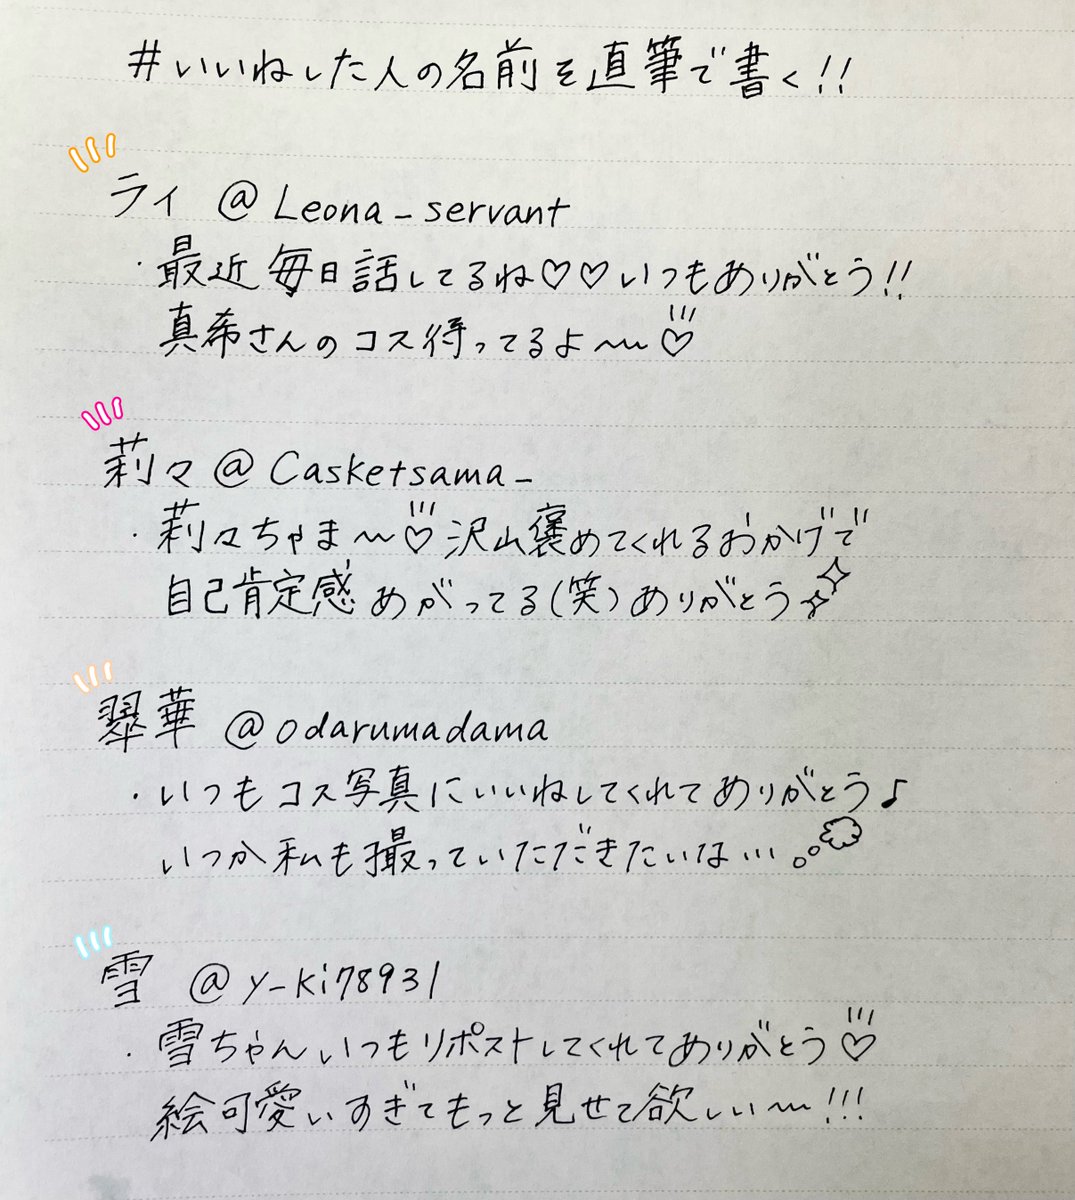 #いいねした人の名前を直筆で書く!!
ライ @Leona_servant
・最近毎日話してるね♡♡いつもありがとう!!
真希さんのコス待ってるよ〜♡
莉々@Casketsama_
・莉々ちゃま〜♡沢山褒めてくれるおかげで
自己肯定感めがってる(笑)ありがとう
翠華 @odarumadama
・いつもコス写真にいいねしてくれてありがとう♪
いつか私も撮っていただきたいな…
雪 @y_ki78931
・雪ちゃんいつもリポストしてくれてありがとう♡
絵可愛いすぎてもっと見せて欲しい〜!!!